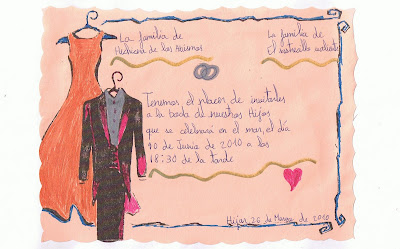 La familia de
Hechicera de los Abismos
La familia de
El
Tenemos el placer de invitarles
a la boda de nuestros Hijos
que se celebrará en el mar, el día
10 de Junio de 2010 a las
18:30 de la tarde
Hijar, 26 de Marzo de 2010